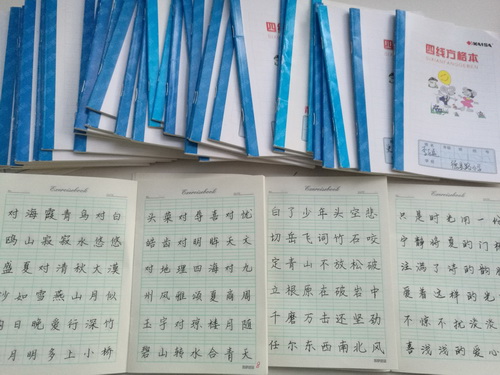 四线方格本
Exercisebook
对海霞青鸟对白
鸥山寂寂水悠悠
盛夏对清秋大漠
如雪燕山月似
日晚曼行深竹
月明多上小桥
Exercisebook
头菜对尊喜对忧
皓首对明眸天天
对地理四海对九
州风雅颂夏商周
玉宇对琼楼月随
碧山转水合青天
Exercisebook
白了少年头空悲
切岳飞词竹石咬
定青山不放松破
立根原在破岩中
千磨万击还坚劲
任尔东西南北风
Exercisebook
只是时光用一
宁静将夏的门
注满了诗的韵
爱着这样的光
不惊不扰淡淡
喜浅浅的爱心